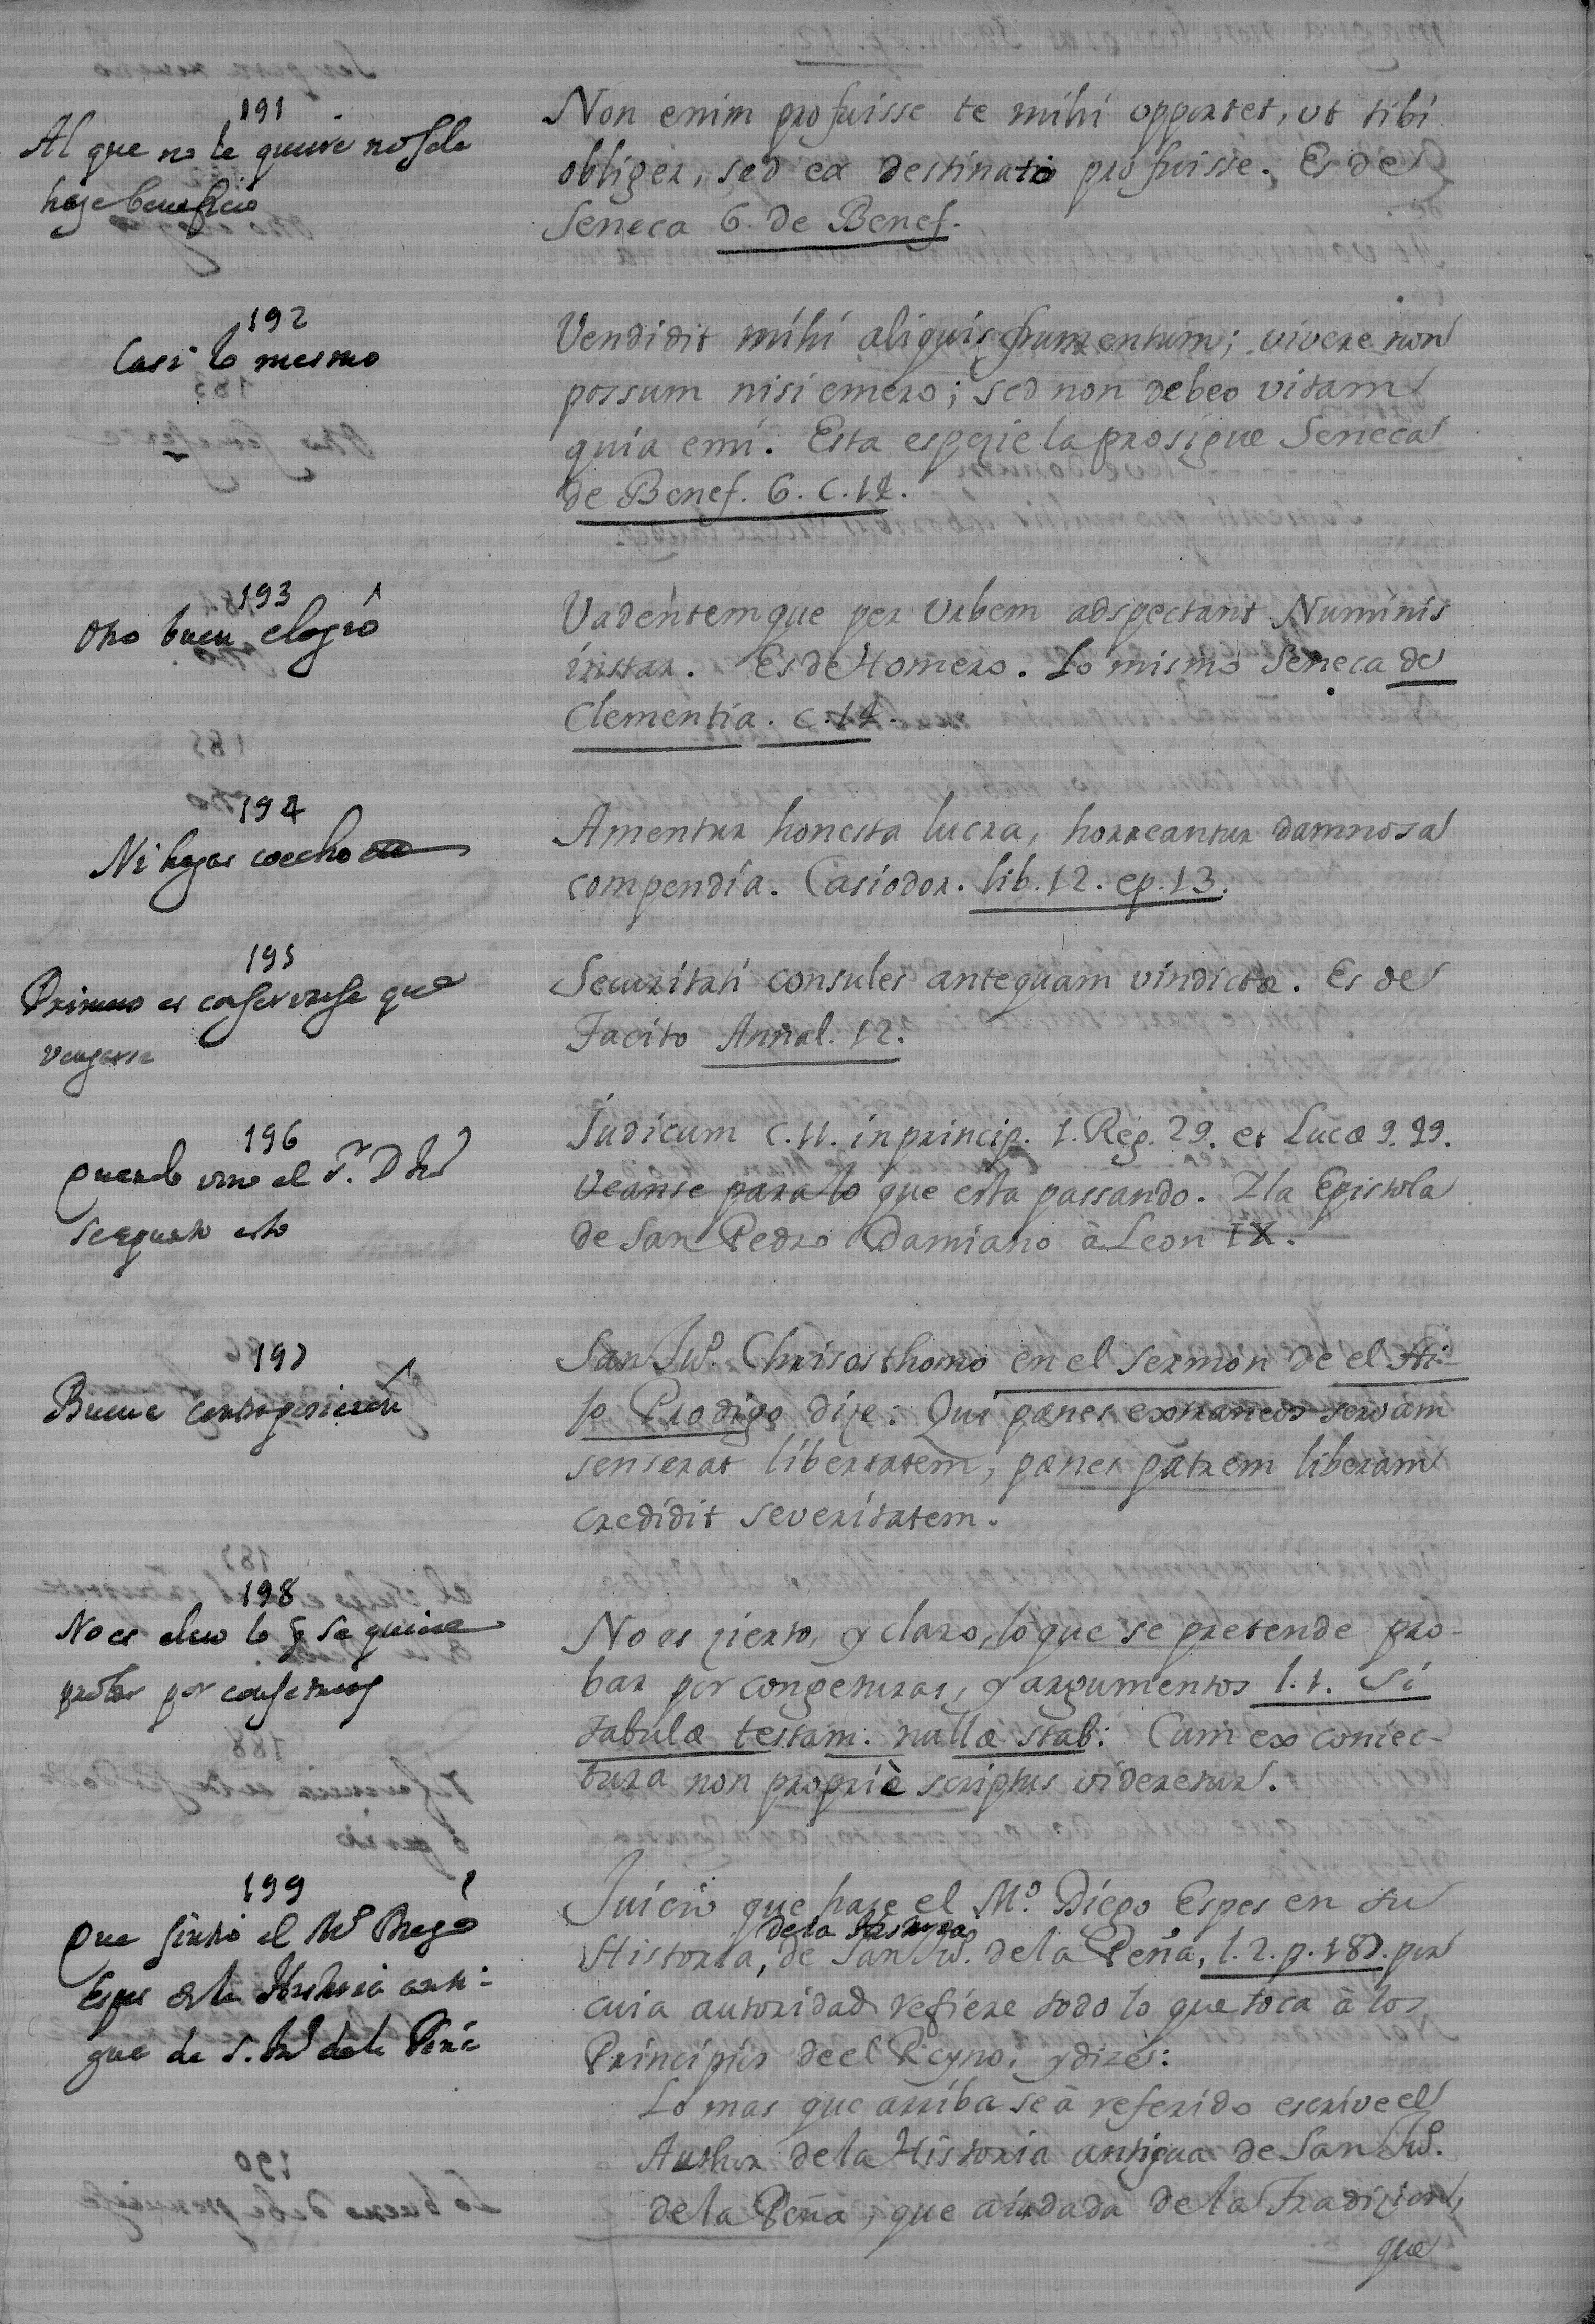 191
Al que no le quiere no se le
haze beneficio
Non enim profuisse te mihi opportet, ut tibi
obliger, sed ex destinato profuisse. Es de
Seneca 6. de Benef.
192
Casi lo mesmo
Vendidit mihi aliquis frumentum; vivere non
possum nisi emero; sed non debeo vitam
quia emi. Esta espezie la prosigue Seneca
de Benef. 6. c. 14.
193
Otro buen elogio
Vadentemque per Urbem adspectant Numinis
instar. Es de Homero. Lo mismo Seneca de
Clementia. c. 14.
194
Ni hagas coecho
Amentur honesta lucra, horreantur damnosa
compendia. Casiodor. lib. 12. ep. 13.
195
Primero es conservarse que
vengarse
Securitati consules antequam vindictæ. Es de
Tacito Annal. 12.
196
Quando vino el Sr. D Ju
se apunto esto
Iudicum c. 11. in princip. 1. Reg. 29. et Lucæ 9. 49.
Veanse para lo que esta passando. I la Epistola
de San Pedro Damiano à Leon IX.
197
Buena contraposicion
San Juº. Chrisosthomo en el sermon de el Hi-
jo Prodigo dize: Qui pænes extraneos servam
senserat libertatem, pænes patrem liberam
credidit severitatem.
198
No es claro lo q se quiere
probar por conjeturas
No es zierto, y claro, lo que se pretende pro-
bar por congeturas, y argumentos l. 1. Si
tabulæ testam. nullæ stab: Cum ex coniec-
tura non propriè scriptus videretur.
199
Que sintio el Mº Diego
Espes de la Historia anti-
gua de S. Juº de la Peña
Juicio que haze el Mº. Diego Espes en su
de la Historia
Historia, de San Juº. de la Peña, l. 2. p. 187. por
cuia autoridad refiere todo lo que toca à los
Principios de el Reyno, y dize:
Lo mas que arriba se à referido escrive el
Author de la Historia antigua de San Juº.
de la Peña, que aiudada de la Tradizion,
que